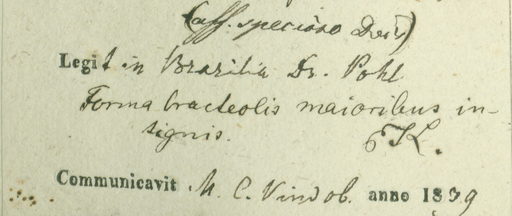 (aff. specioso Don)
Legit in Brasilia Dr. Pohl
Forma bracteolis maioribus in-
signis. EK.
Communicavit M. C. Vindob. anno 1839